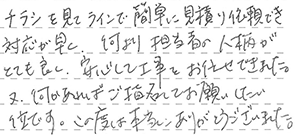 チラシを見てラインで簡単に見積り依頼でき
対応が早く、何より担当者の人柄が
とても良く、安心して工事をお任せできました。
又、何かあればご指名してお願いしたい
位です。この度は本当にありがとうございました。